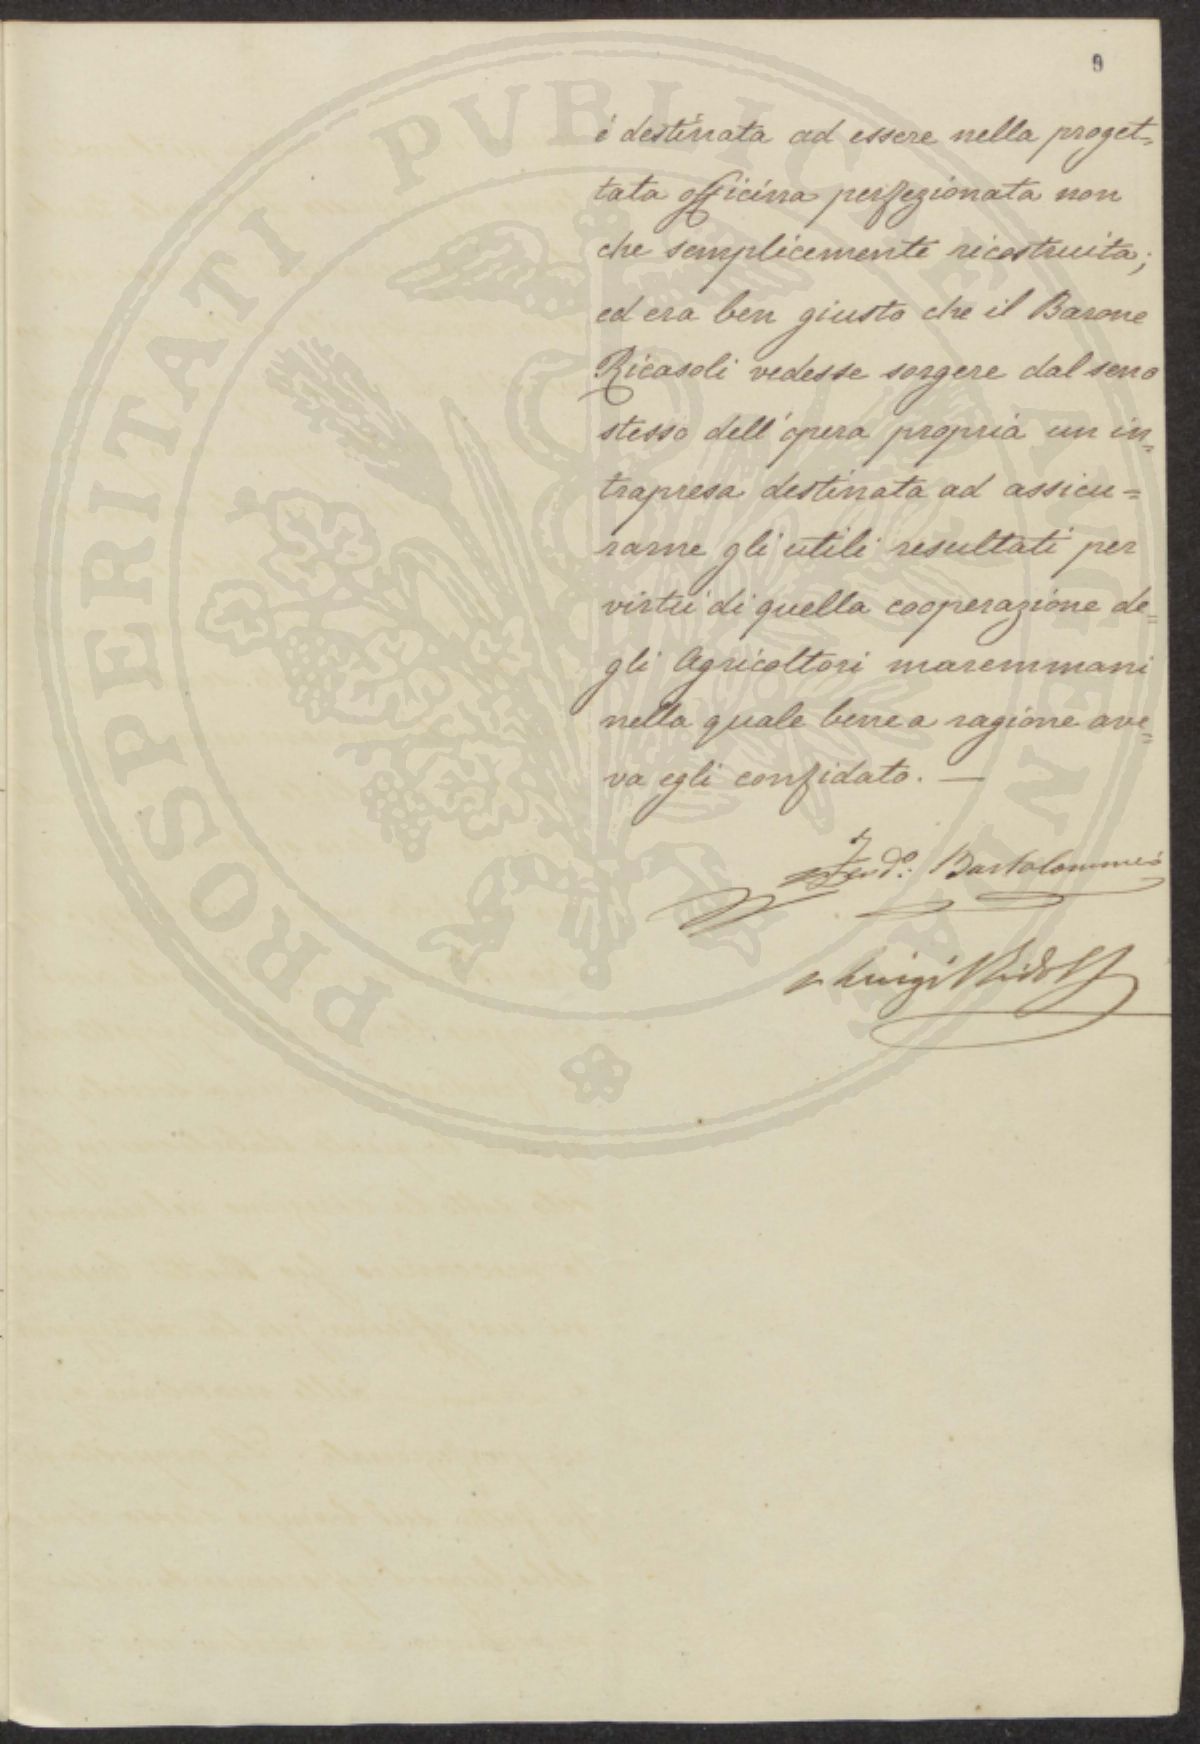 9
è destinata ad essere nella proget=
tata officina perfezionata non
che semplicemente ricostruita;
ed era ben giusto che il Barone
Ricasoli vedesse sorgere dal seno
stesso dell'opera propria un in=
trapresa destinata ad assicu=
rarne gli utili resultati per
virtù di quella cooperazione de=
gli Agricoltori maremmani
nella quale bene a ragione ave=
va egli confidato. —
Ferd.º: Bartolommei
Luigi Ridolfi
PROSPERITATI PUBLICAE AUGENDAE